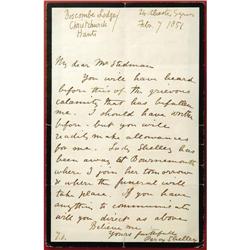 Boscombe Lodge
Christchurch
Hants
Chester Square
Feb. 7 1851
My dear Mr Stedman
You will have heard
before this of the grievous
calamity that has befallen
me. I should have written
before but you will
readily make allowances
for me. Lady Shelley has
been away at Bournemouth
where I join her tomorrow
& where the funeral will
take place. If you have
anything to communicate
will you direct as above
Believe me
Yours faithfully
Percy Shelley